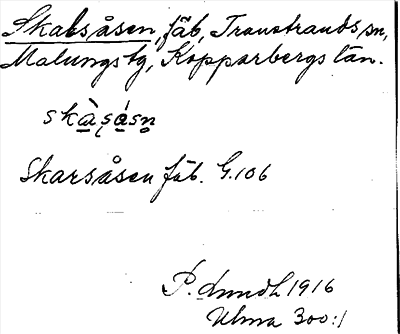 Skalsåsen, fäb, Transtrands sn,
Malungs tg, Kopparbergs län.
skàs̨ásn̥
Skarsåsen fäb. G. 106
P. Lundh 1916
Ulma 300:1